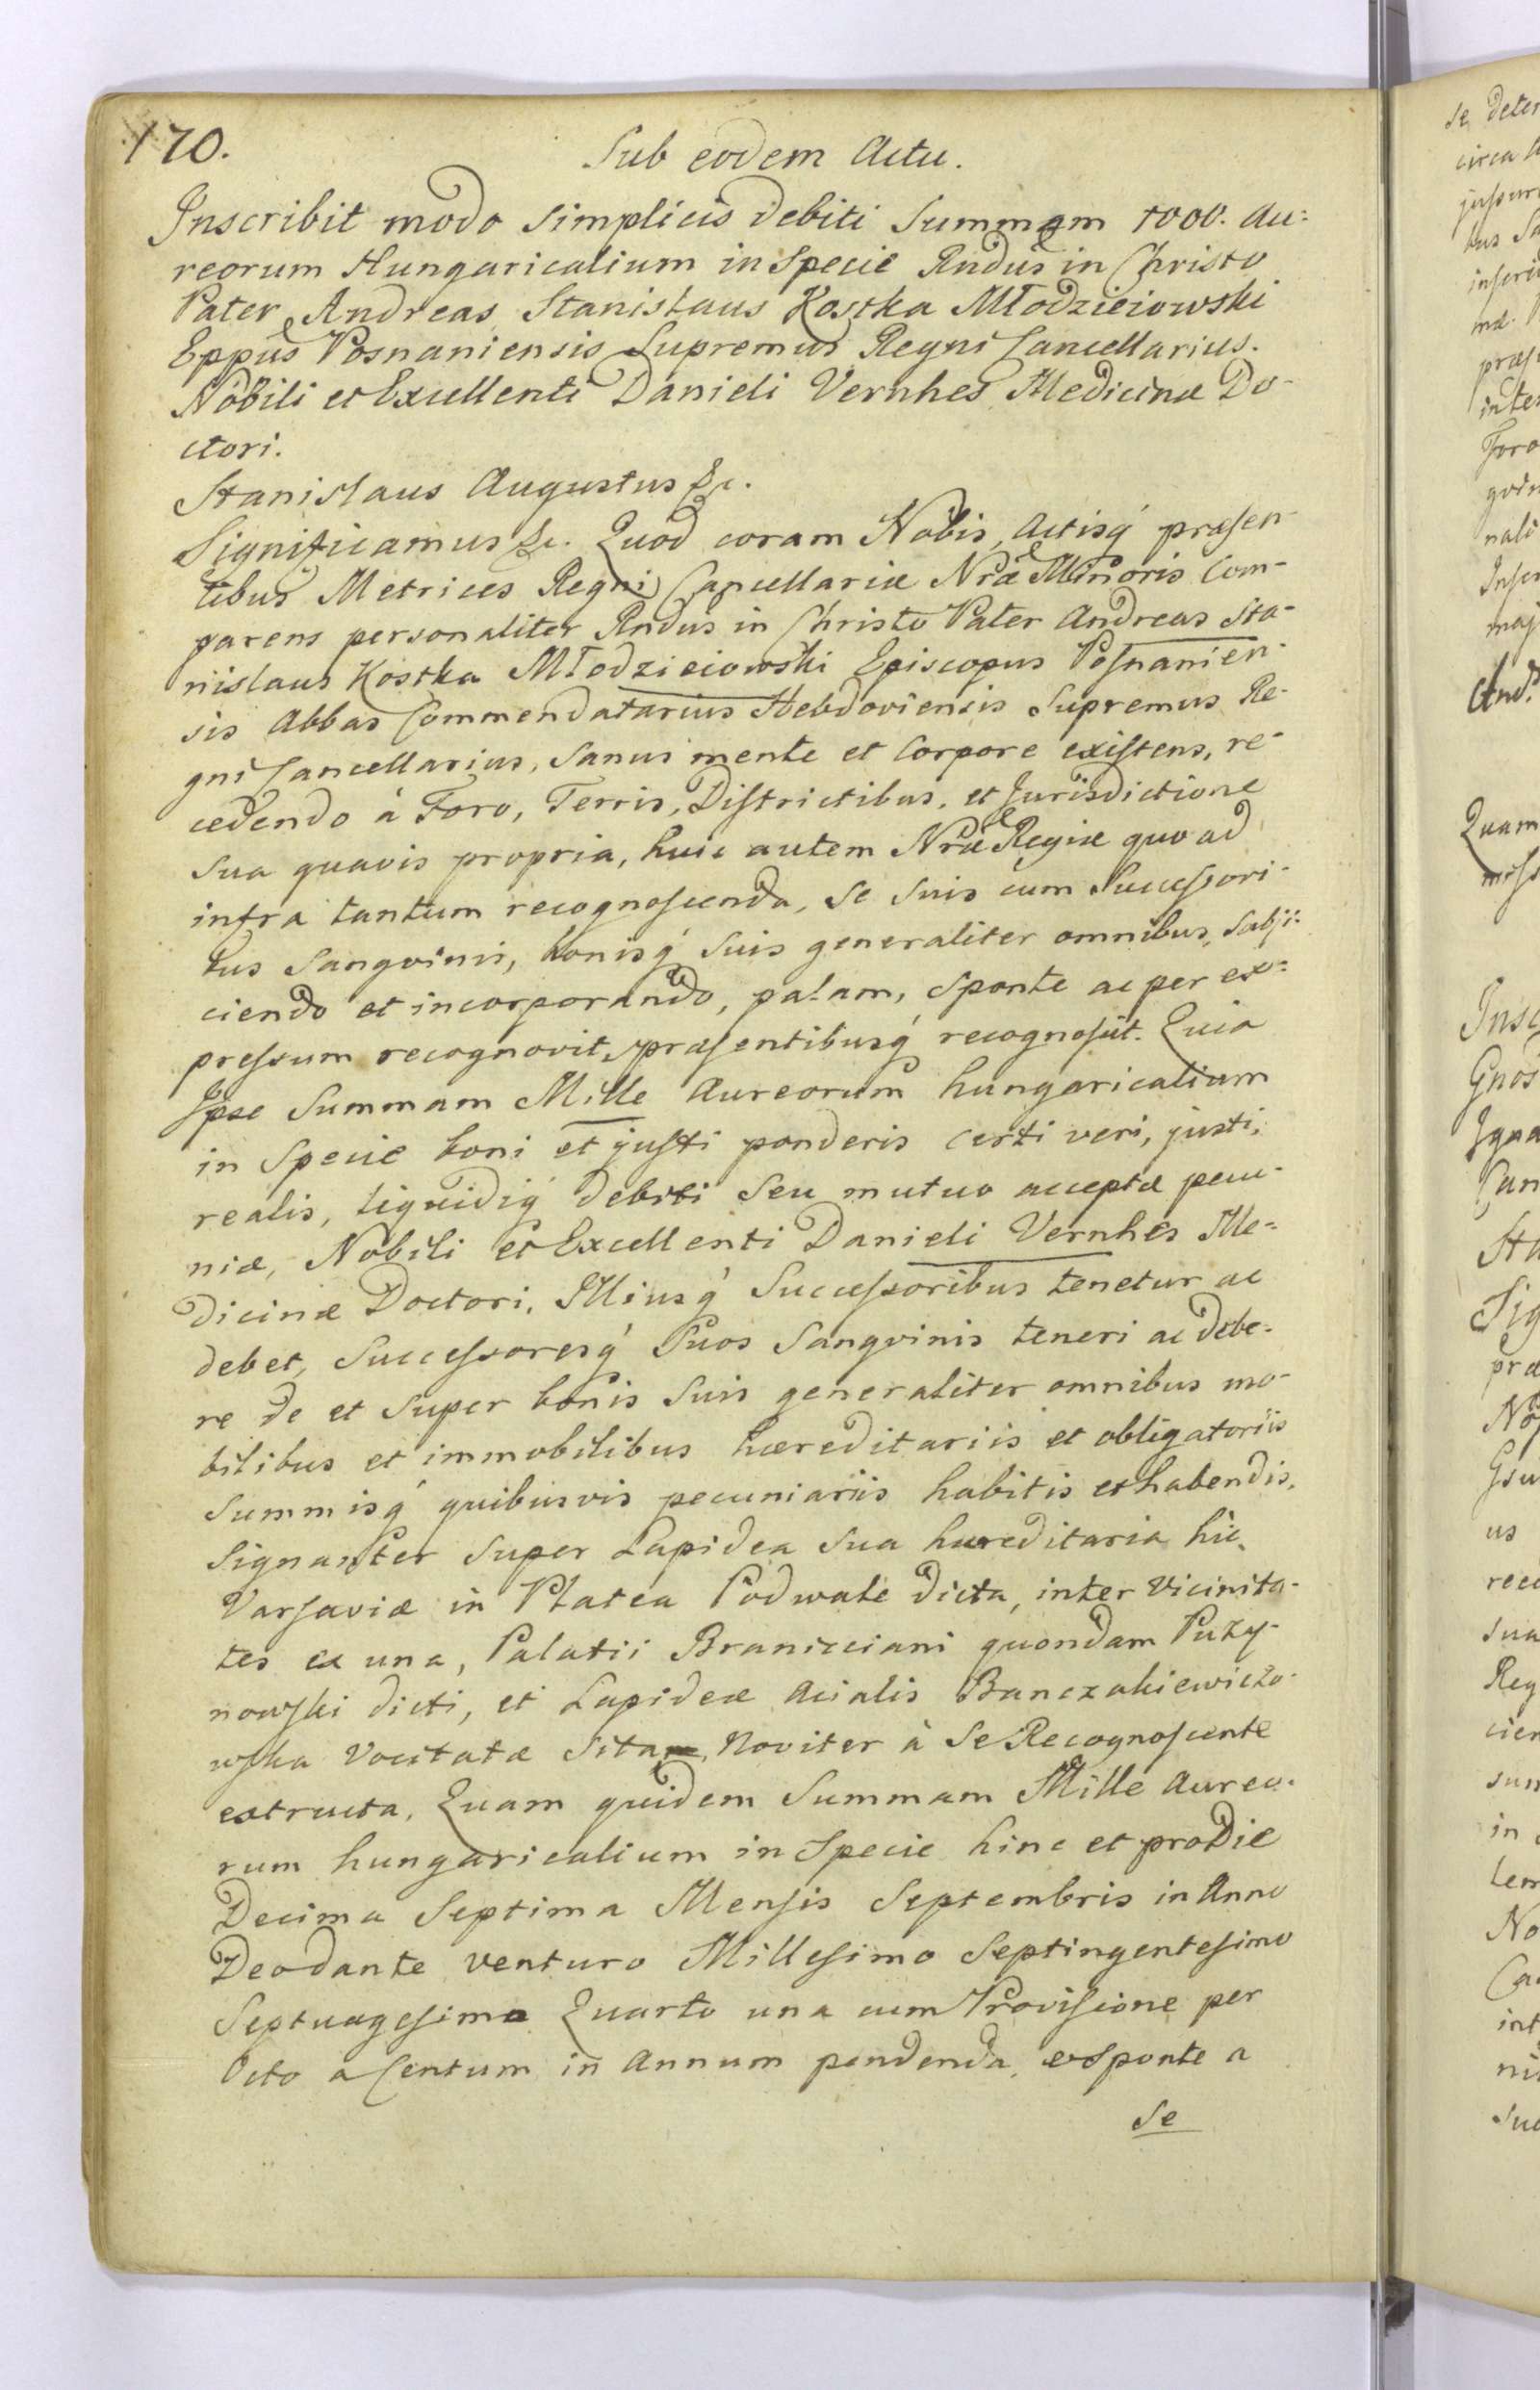 170.
Sub eodem Actu.
Inscribit modo simplicis debiti Summam 1000. Au:
reorum Hungaricalium in Specie Rndus in Christo
Pater Andreas Stanislaus Kostka Młodzieiowski
Eppus Posnaniensis Supremus Regni Cancellarius.
Nobili et Excellenti Danieli Vernhes Medicinæ Do-
ctori.
Stanislaus Augustus &c.
Significamus &c. Quod coram Nobis, Actisq́ præsen-
tibus Metrices Regni Cancellariæ Nræ Minoris Com-
parens personaliter Rndus in Christo Pater Andreas Sta-
nislaus Kostka Młodzieiowski Episcopus Posnanien-
sis Abbas Commendatarius Hebdoviensis Supremus Re-
gni Cancellarius, Sanus mente et Corpore existens, re-
cedendo à Foro, Terris, Districtibus, et Jurisdictione
sua quavis propria, huic autem Nræ Regiæ quo ad
infra tantum recognoscenda, se suis cum Successori-
bus Sangvinis, bonisq́ suis generaliter omnibus, Subji-
ciendo et incorporando, palam, sponte ac per ex=
pressum recognovit, præsentibusq́ recognoscit. Quia
Ipse Summam Mille Aureorum hungaricalium
in Specie boni et justi ponderis certi veri, justi,
realis, liquidiq́ debiti seu mutuo acceptæ pecu-
niæ, Nobili et Excellenti Danieli Vernhes Me=
dicinæ Doctori, Illiusq́ Successoribus tenetur ac
debet, Successoresq́ Suos Sangvinis teneri ac debe-
re de et super bonis suis generaliter omnibus mo-
bilibus et immobilibus hæreditariis et obligatoriis
Summisq́ quibusvis pecuniariis habitis et habendis,
Signanter super Lapidea sua hæreditaria hic
Varsaviæ in Platea Podwale dicta, inter Vicinita-
tes ex una, Palatii Branicciani quondam Puzy-
nowski dicti, et Lapideæ Acialis Banczakiewiczo-
wska Vocitatæ Sita, Noviter à Se Recognoscente
extructa. Quam quidem Summam Mille Aureo-
rum hungaricalium in Specie hinc et pro Die
Decima Septima Mensis Septembris in Anno
Deo dante venturo Millesimo Septingentesimo
Septuagesimo Quarto una cum Provisione per
Octo a Centum in Annum pendenda, exsponte a
se